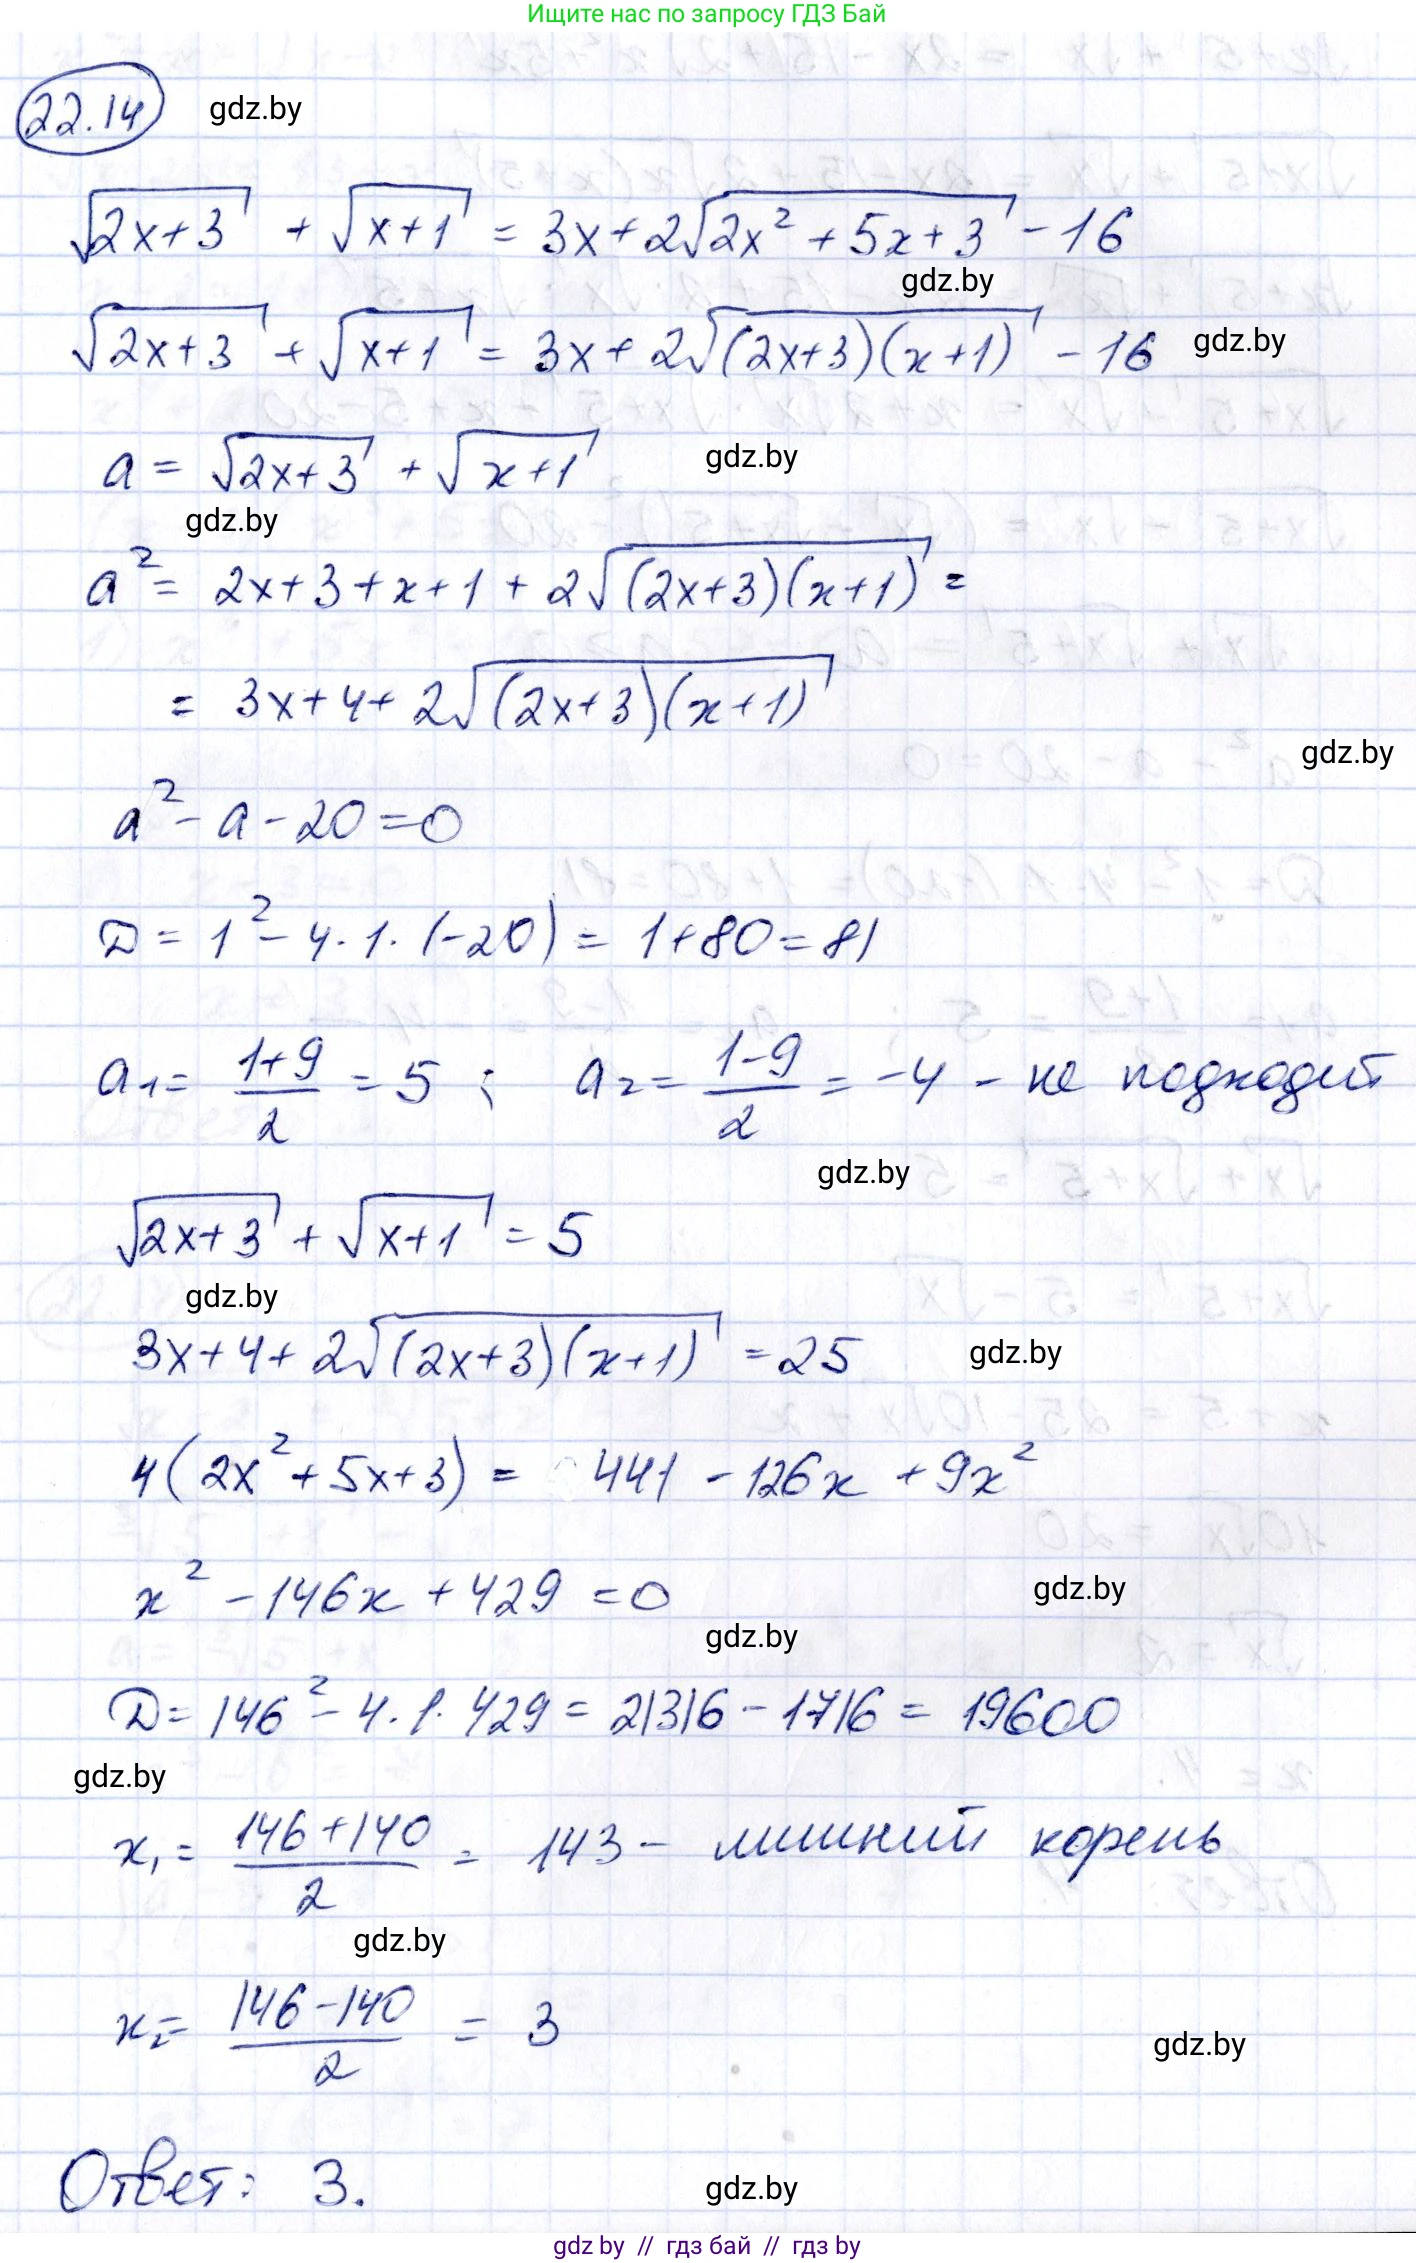 Ищите нас по запросу ГДЗ Бай
22.14 gdz.by
√(2x+3) + √(x+1) = 3x+2√(2x²+5x+3) - 16
gdz.by
√(2x+3) + √(x+1) = 3x+2√((2x+3)(x+1)) - 16 gdz.by
a = √(2x+3) + √(x+1) gdz.by
gdz.by
a² = 2x+3+x+1+2√((2x+3)(x+1)) =
= 3x+4+2√((2x+3)(x+1))
gdz.by
a² - a - 20 = 0
D = 1² - 4·1·(-20) = 1+80 = 81
a₁ = (1+9)/2 = 5 ; a₂ = (1-9)/2 = -4 - не подходит
gdz.by
√(2x+3) + √(x+1) = 5
gdz.by
3x+4+2√((2x+3)(x+1)) = 25 gdz.by
4(2x²+5x+3) = 441 - 126x + 9x²
x² - 146x + 429 = 0 gdz.by
gdz.by
D = 146² - 4·1·429 = 21316 - 1716 = 19600
gdz.by
x₁ = (146+140)/2 = 143 - лишний корень
gdz.by
x₂ = (146-140)/2 = 3
gdz.by
Ответ: 3. gdz.by
gdz by // гдз бай // gdz by